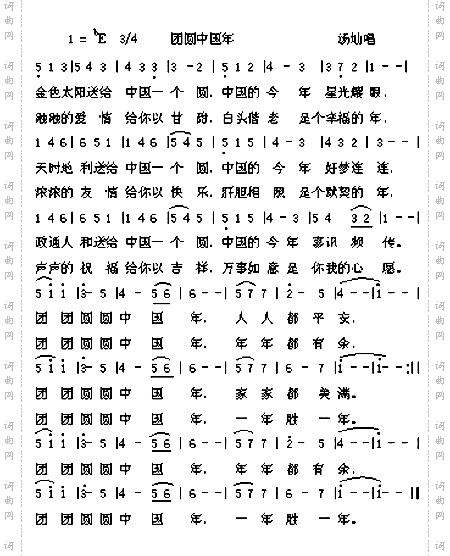 1 = ♭E 3/4 团圆中国年 汤灿唱
5 1 3 | 5 4 3 | 4 3 3 | 3 - 2 | 5 1 2 | 4 - 3 | 3 7 2 | 1 - - |
金色太阳送给 中国一个 圆, 中国的 今 年 星光耀 眼,
融融的爱 情 给你以 甘 甜, 白头偕 老 是个幸福的 年,
1 4 6 | 6 5 1 | 1 4 6 | 5 4 5 | 5 1 5 | 4 - 3 | 4 3 2 | 3 - - |
天时地 利送给 中国一 个 圆, 中国的 今 年 好梦连 连,
浓浓的 友 情给你以 快 乐, 肝胆相 照 是个默契的 年,
1 4 6 | 6 5 1 | 1 4 6 | 5 4 5 | 5 1 5 | 4 - 3 | 5 4 3 2 | 1 - - |
政通人 和送给 中国一 个 圆, 中国的 今 年 喜讯 频 传。
声声的 祝 福给你以 吉 祥, 万事如 意是 你我的心 愿。
5 i i | 3 - 5 | 4 - 5 6 | 6 - - | 5 7 7 | 2 - 5 | 4 - - | i - - |
团 团圆圆中 国 年, 人 人 都 平 安,
团 团圆圆中 国 年, 年 年 都 有 余,
5 i i | 3 - 5 | 4 - 5 6 | 6 - - | 5 7 7 | 6 - 7 | i - - | i - - :||
团 团圆圆中 国 年, 家 家 都 美 满。
团 团圆圆中 国 年, 一 年 胜 一 年。
5 i i | 3 - 5 | 4 - 5 6 | 6 - - | 5 7 7 | 2 - 5 | 4 - - | i - - |
团 团圆圆中 国 年, 年 年 都 有 余,
5 i i | 3 - 5 | 4 - 5 6 | 6 - - | 5 7 7 | 6 - 7 | i - - | i - - ||
团 团圆圆中 国 年, 一 年 胜 一 年。
词曲网
词曲网
词曲网
词曲网
词曲网
词曲网
词曲网
词曲网
词曲网
词曲网
词曲网
词曲网
词曲网
词曲网